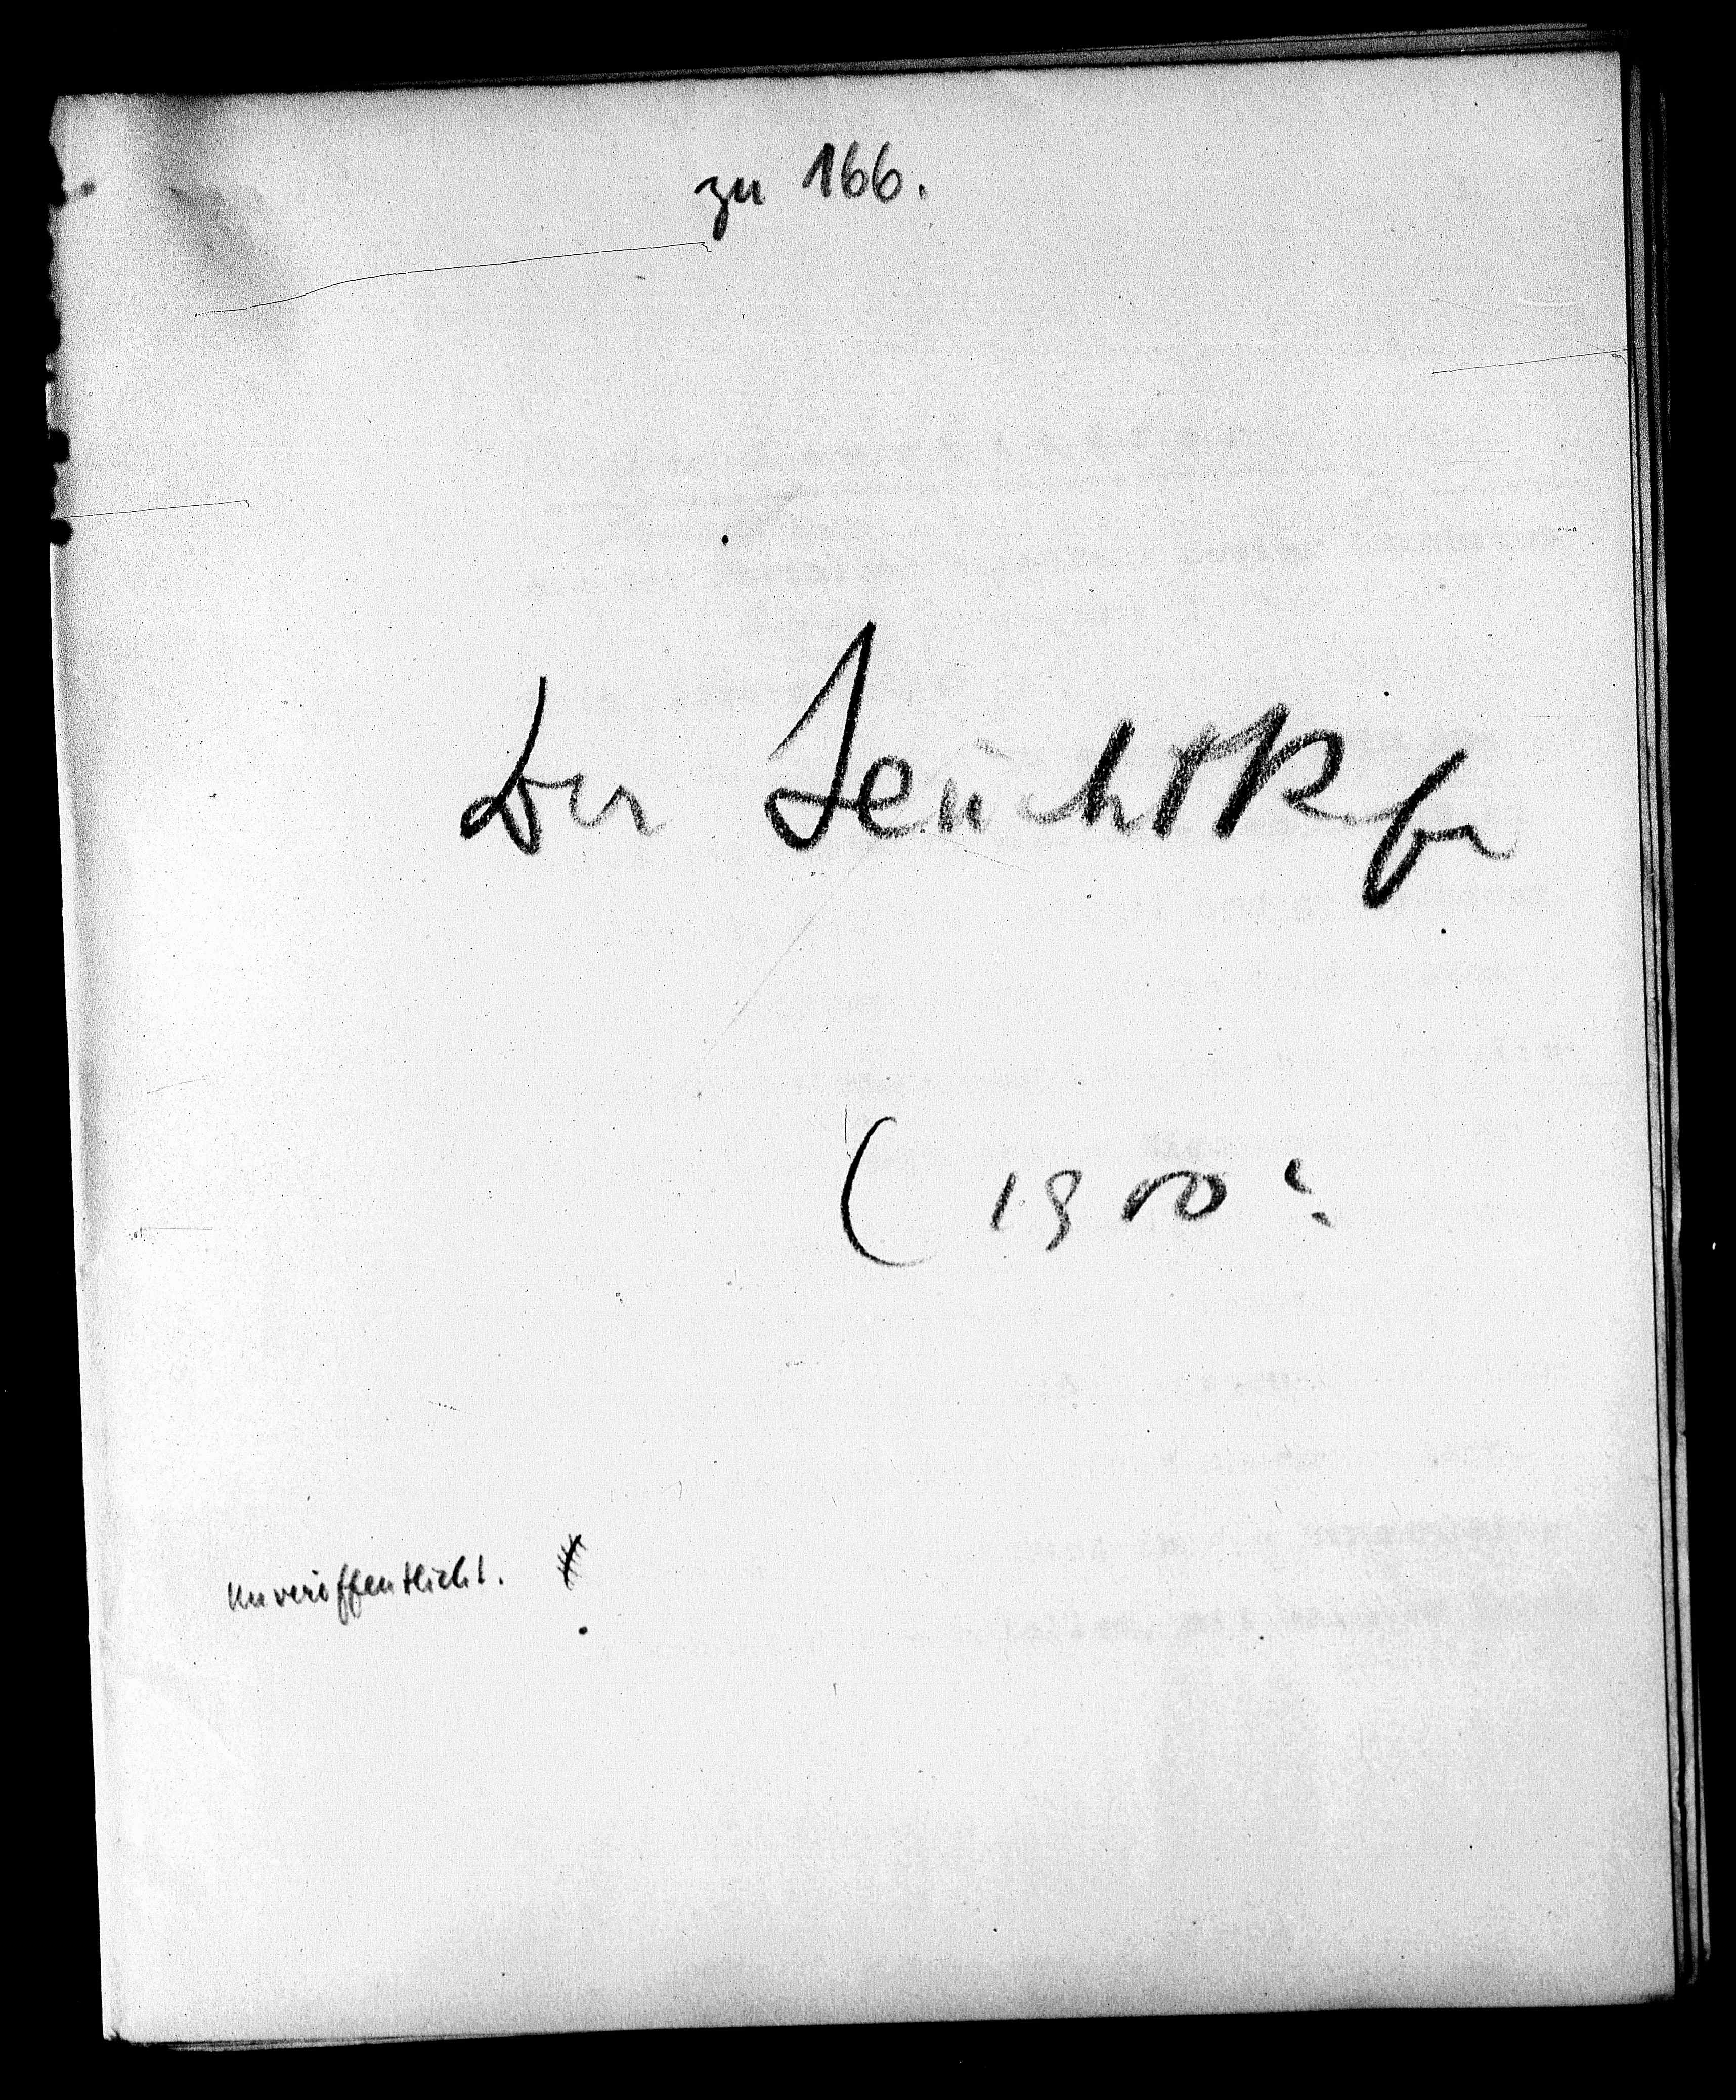 zu 166.
Der Leuchtkäfer
(1900?
Unveröffentlicht.